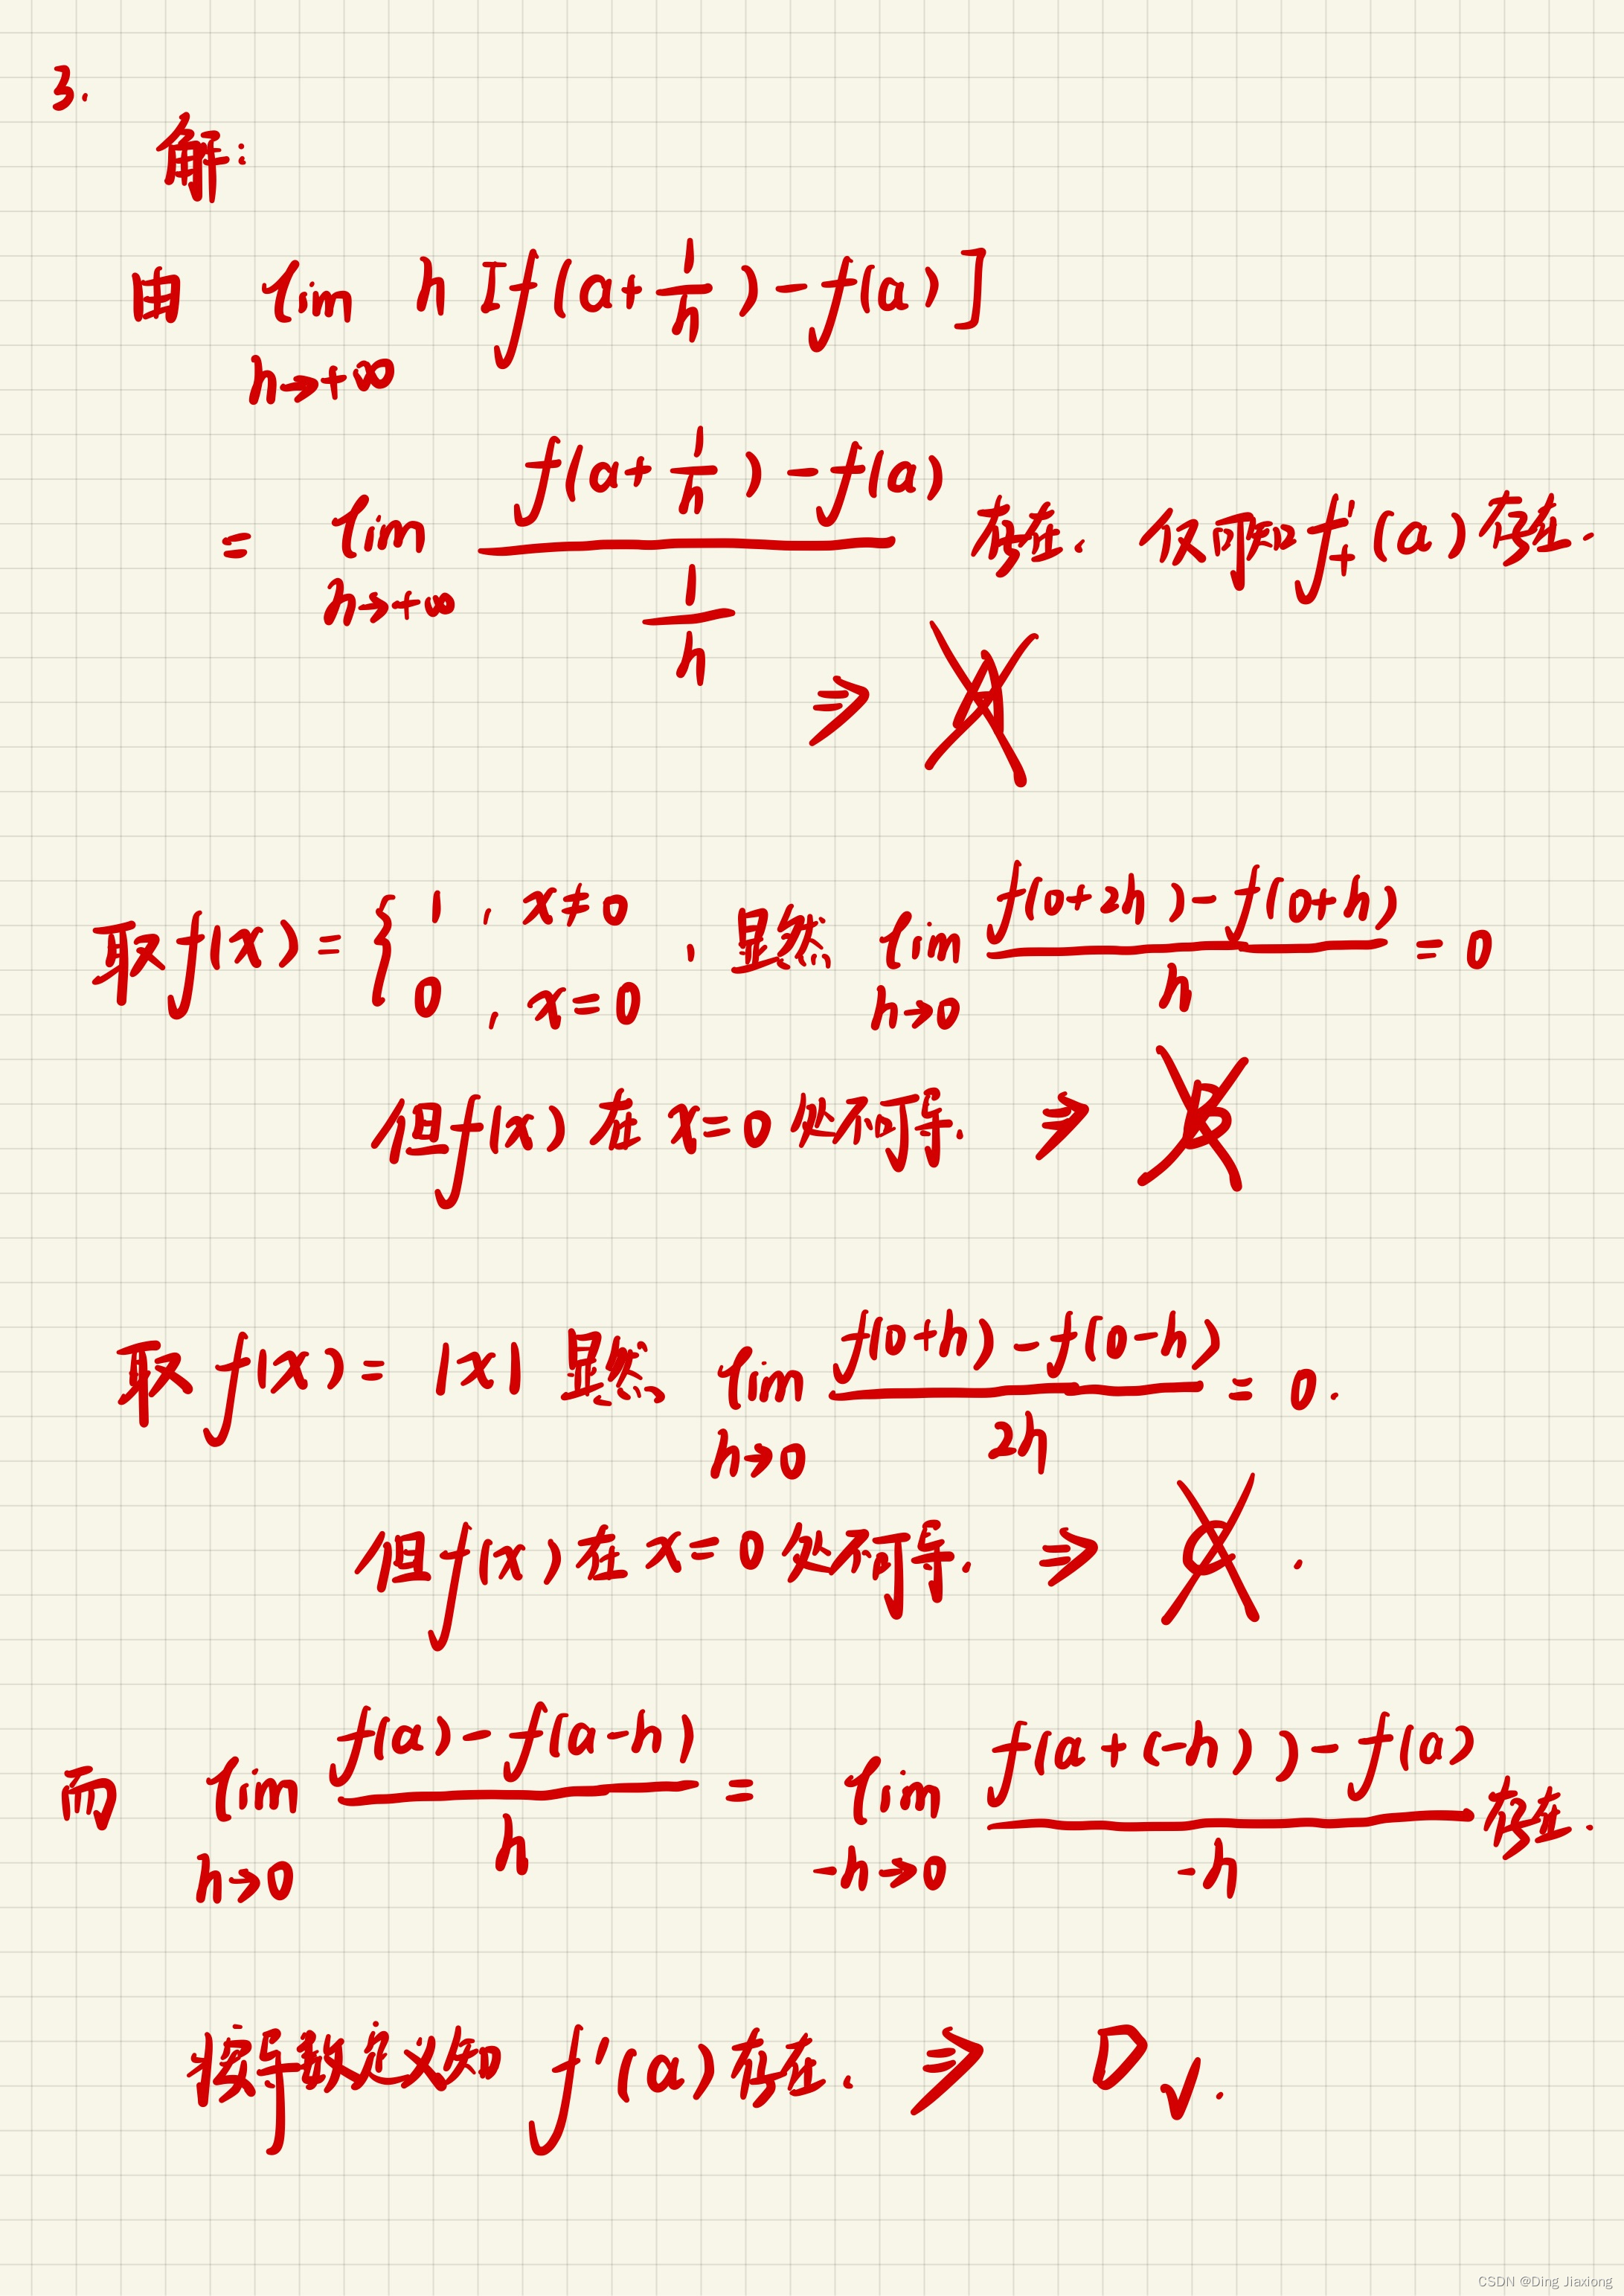 3.
解:
由 lim h→+∞ h [f(a+1/h)-f(a)]
= lim h→+∞ (f(a+1/h)-f(a))/(1/h) 存在. 仅可知 f'₊(a) 存在.
⇒ A
取 f(x)= { 1 , x≠0
0 , x=0 , 显然 lim h→0 (f(0+2h)-f(0+h))/h = 0
但 f(x) 在 x=0 处不可导. ⇒ B
取 f(x)= |x| 显然 lim h→0 (f(0+h)-f(0-h))/2h = 0.
但 f(x) 在 x=0 处不可导. ⇒ C .
而 lim h→0 (f(a)-f(a-h))/h = lim -h→0 (f(a+(-h))-f(a))/-h 存在.
按导数定义知 f'(a) 存在. ⇒ D √.
CSDN @Ding Jiaxiong